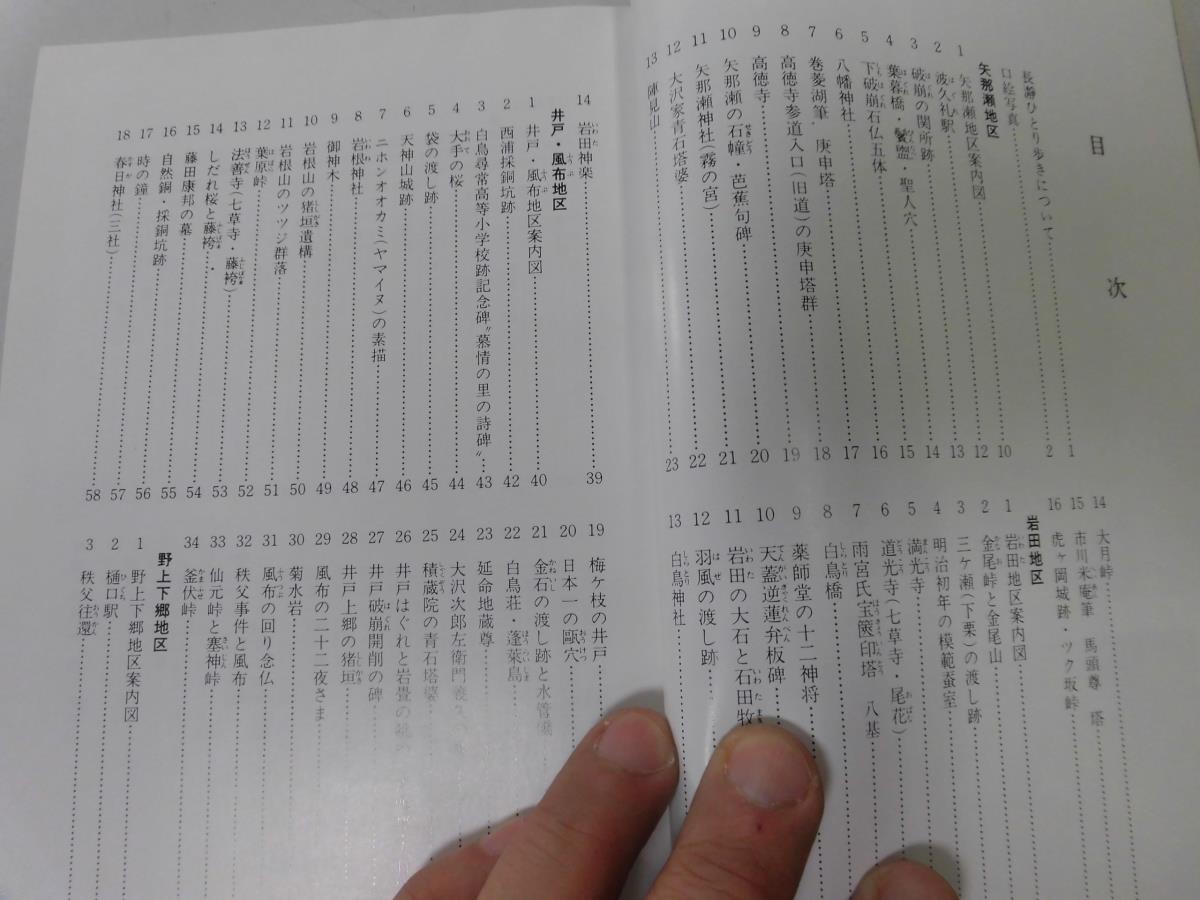 目次
長瀞ひとり歩きについて 1
口絵写真 2
矢那瀬地区
1 矢那瀬地区案内図 10
2 波久礼駅 12
3 破崩の関所跡 13
4 葉暮橋・鬢盥・聖人穴 14
5 下破崩石仏五体 15
6 八幡神社 16
7 巻菱湖筆・庚申塔 17
8 高徳寺参道入口(旧道)の庚申塔群 18
9 高徳寺 19
10 矢那瀬の石幢・芭蕉句碑 20
11 矢那瀬神社(霧の宮) 21
12 大沢家青石塔婆 22
13 陣見山 23
14 大月峠
15 市川米庵筆 馬頭尊 塔
16 虎ヶ岡城跡・ツク坂峠
岩田地区
1 岩田地区案内図
2 金尾峠と金尾山
3 三ケ瀬(下栗)の渡し跡
4 明治初年の模範蚕室
5 満光寺
6 道光寺(七草寺・尾花)
7 雨宮氏宝篋印塔 八基
8 白鳥橋
9 薬師堂の十二神将
10 天蓋逆蓮弁板碑
11 岩田の大石と石田牧
12 羽風の渡し跡
13 白鳥神社
14 岩田神楽 39
井戸・風布地区
1 井戸・風布地区案内図 40
2 西浦採銅坑跡 42
3 白鳥尋常高等小学校跡記念碑〝慕情の里の詩碑〟 43
4 大手の桜 44
5 袋の渡し跡 45
6 天神山城跡 46
7 ニホンオオカミ(ヤマイヌ)の素描 47
8 岩根神社 48
9 御神木 49
10 岩根山の猪垣遺構 50
11 岩根山のツツジ群落
12 葉原峠 51
13 法善寺(七草寺・藤袴) 52
14 しだれ桜と藤袴 53
15 藤田康邦の墓 54
16 自然銅・採銅坑跡 55
17 時の鐘 56
18 春日神社(三社) 57
58
19 梅ケ枝の井戸
20 日本一の甌穴
21 金石の渡し跡と水管橋
22 白鳥荘・蓬萊島
23 延命地蔵尊
24 大沢次郎左衛門
25 積蔵院の青石塔婆
26 井戸はぐれと岩畳の
27 井戸破崩開削の碑
28 井戸上郷の猪垣
29 風布の二十二夜さま
30 菊水岩
31 風布の回り念仏
32 秩父事件と風布
33 仙元峠と塞神峠
34 釜伏峠
野上下郷地区
1 野上下郷地区案内図
2 樋口駅
3 秩父往還